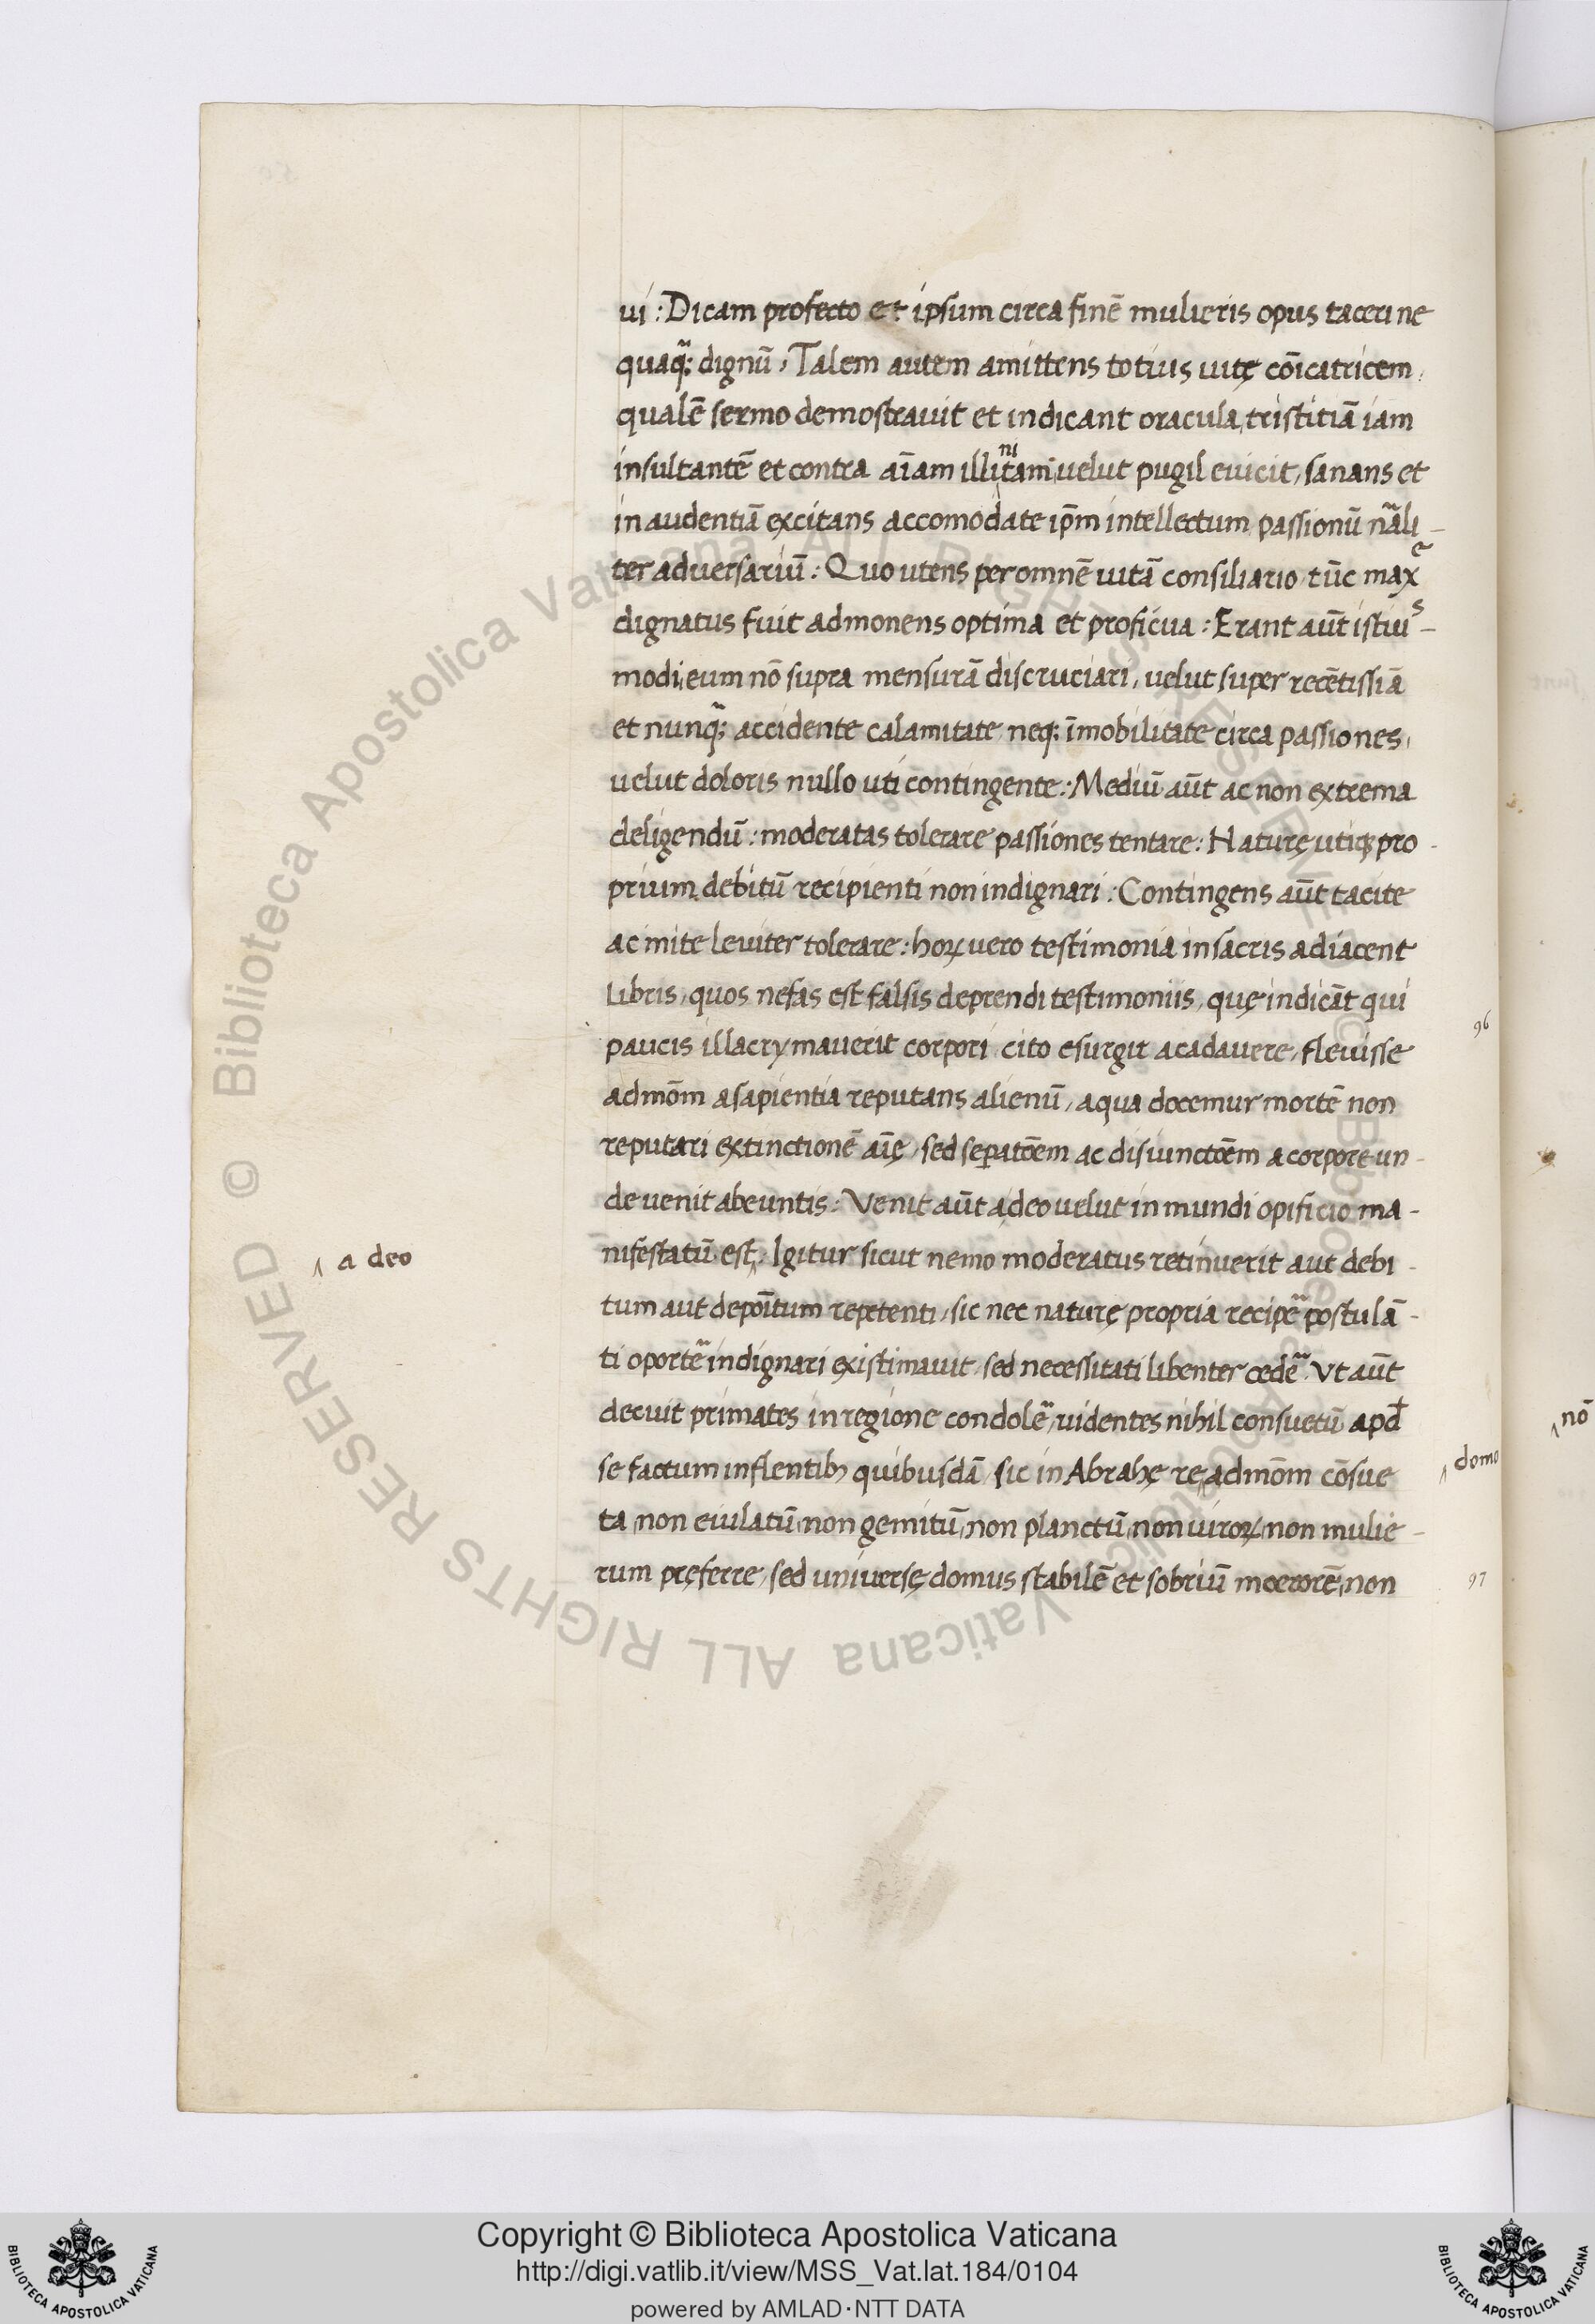 ui : Dicam profecto et ipsum circa finē mulieris opus taceri ne
quaq̃; dignū, Talem autem amittens totius uitę cōicatricem,
qualē sermo demostrauit et indicant oracula, tristitiā iam
insultantē et contra aīam illi^nitam, uelut pugil euicit, sanans et
in audentiā excitans accomodate ip̄m intellectum passionū nãli-
ter adversariū : Quo utens per omnē uitā consiliario, tūc maxe
dignatus fuit admonens optima et proficua : Erant aūt istius-
modi, eum nō supra mensurā discruciari, velut super recētissiā
et nunq̃; accidente calamitate, neq; īmobilitate circa passiones,
uelut doloris nullo uti contingente : Mediū aūt ac non extrema
deligendū : moderatas tolerare passiones tentare : Naturę utiq; pro-
prium debitū recipienti non indignari : Contingens aūt tacite
ac mite leuiter tolerare : hoꝝ vero testimonia in sacris adiacent
Libris, quos nefas est falsis deprendi testimoniis, quę indicāt qui
paucis illacrymauerit corpori cito esurgit a cadauere, flevisse
admōm a sapientia reputans alienū, a qua docemur mortē non
reputari extinctionē aīę, sed sep̱atōem ac disiunctōem a corpore un-
de venit abeuntis : Venit aūt a deo velut in mundi opificio ma-
nifestatū est : Igitur sicut nemo moderatus retinuerit aut debi-
tum aut depoītum repetenti, sic nec naturę propria recipẽ postulā-
ti oportẽ indignari existimauit, sed necessitati libenter cedẽ. Vt aūt
decuit primates in regione condolẽ, uidentes nihil consuetū apđ
se factum in flentibꝫ quibusdā, sic in Abrahę re, admōm cōsue
ta, non eiulatū, non gemitū, non planctū, non uiroꝝ, non mulie-
rum pręferre, sed universę domus stabilē et sobriū moerorē, non
96
a deo
domo
nō
97
Copyright © Biblioteca Apostolica Vaticana
http://digi.vatlib.it/view/MSS_Vat.lat.184/0104
powered by AMLAD·NTT DATA
© Biblioteca Apostolica Vaticana ALL RIGHTS RESERVED
© Biblioteca Apostolica Vaticana ALL RIGHTS RESERVED
BIBLIOTECA APOSTOLICA VATICANA
BIBLIOTECA APOSTOLICA VATICANA